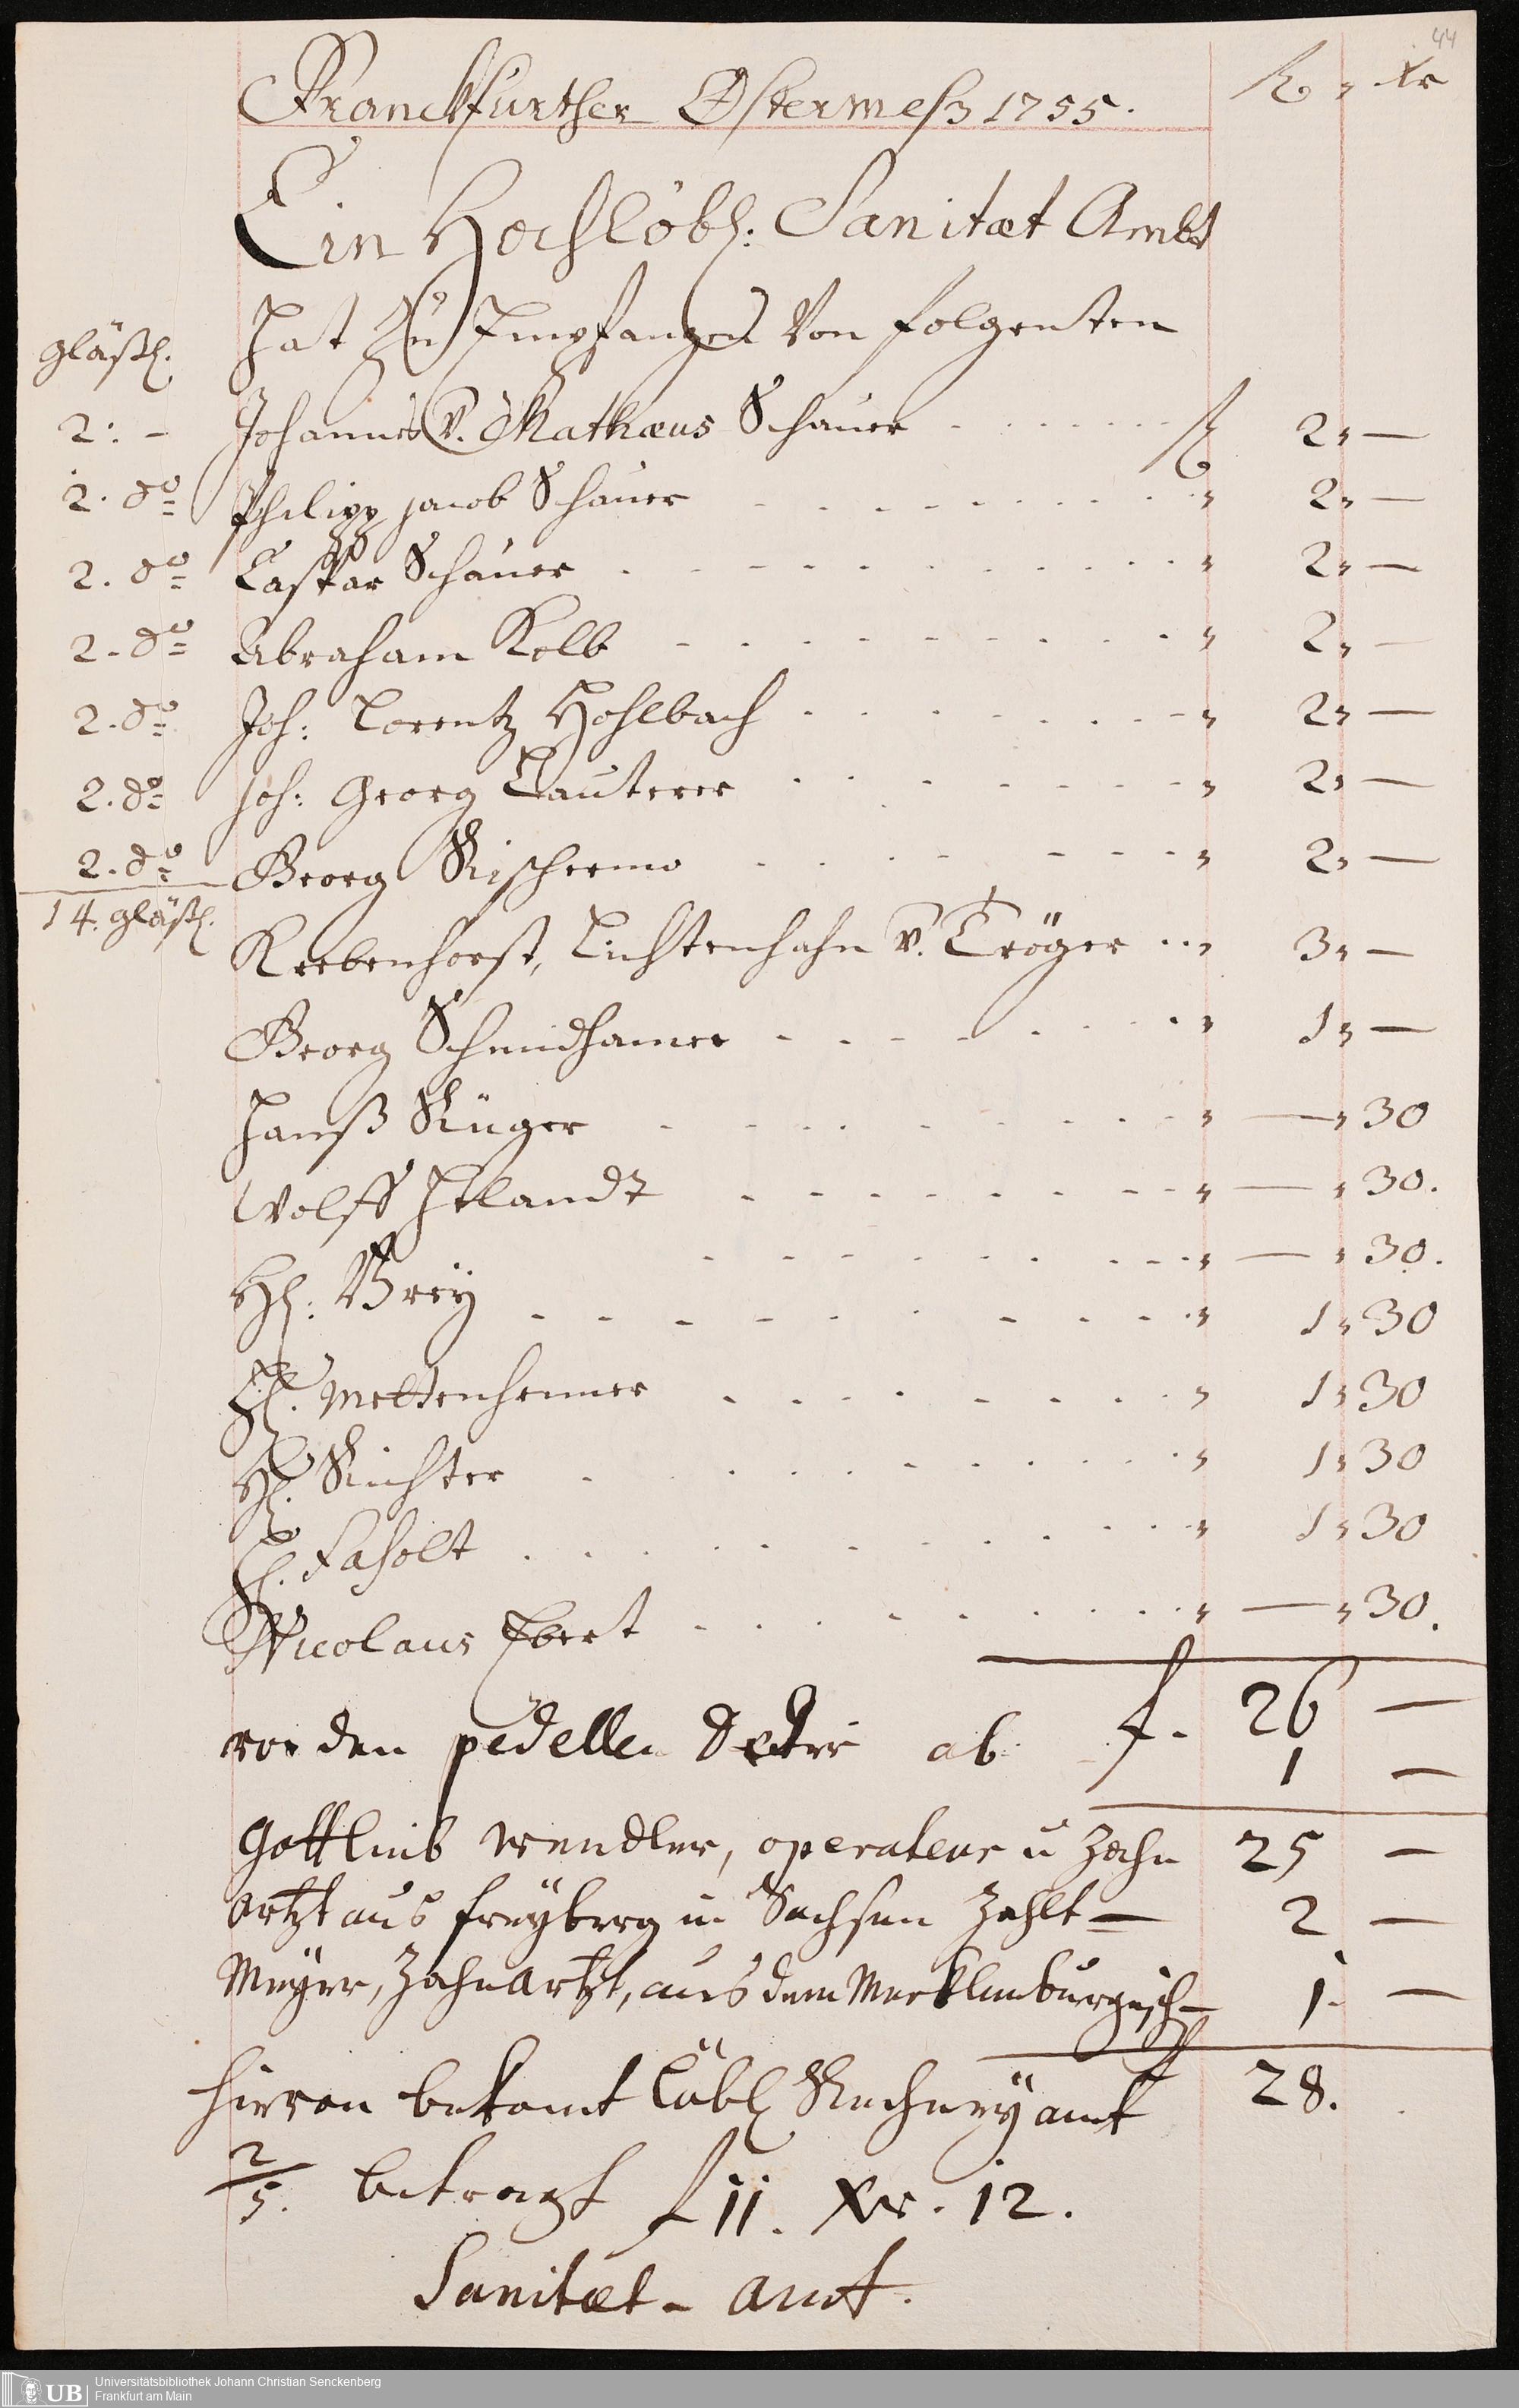 44
Franckfurther Ostermeß 1755. fl „ Xr
Ein Hochlöbl: Sanitæt Ambt
gläßl. Hat Zu Empfangen Von folgenten
2: – Johannes v. Mathæus Schauer - - - fl 2 „ —
2. do Philipp jacob Schauer - - - „ 2 „ —
2. do Caspar Schauer - - - „ 2 „ —
2. do Abraham Kolb - - - „ 2 „ —
2. do Joh: Lorentz Hohlbach - - - „ 2 „ —
2. do Joh: Georg Lauterer - - - „ 2 „ —
2. do Georg - - - „ 2 „ —
14. gläßl.
Krebenhorst, Lichtenhahn v. Tröger - - „ 3 „ —
Georg Schmidhamer - - - „ 1 „ —
Hanß Rüger - - - „ — „ 30
Wolff Helandt - - - „ — „ 30.
- - - „ — „ 30.
Hl: Brey - - - „ 1 „ 30
Hl. Mettenheimer - - - „ 1 „ 30
Hl. Richter - - - „ 1 „ 30
Hl. Fasolt - - - „ 1 „ 30
Nicolaus Ebert - - - „ — „ 30.
von den pedellen ab f. 26 —
1 —
25 —
Gottlieb Wendler, operateur u Zahn
artzt aus freyberg in Sachsen zahlt — 2 —
Meyer, Zahnartzt, aus dem Mecklenburgisch — 1. —
28.
hievon bekomt Löbl Rechney amt
2/5. betragt f 11. Xr. 12.
Sanitæt - amt.
UB Universitätsbibliothek Johann Christian Senckenberg
Frankfurt am Main